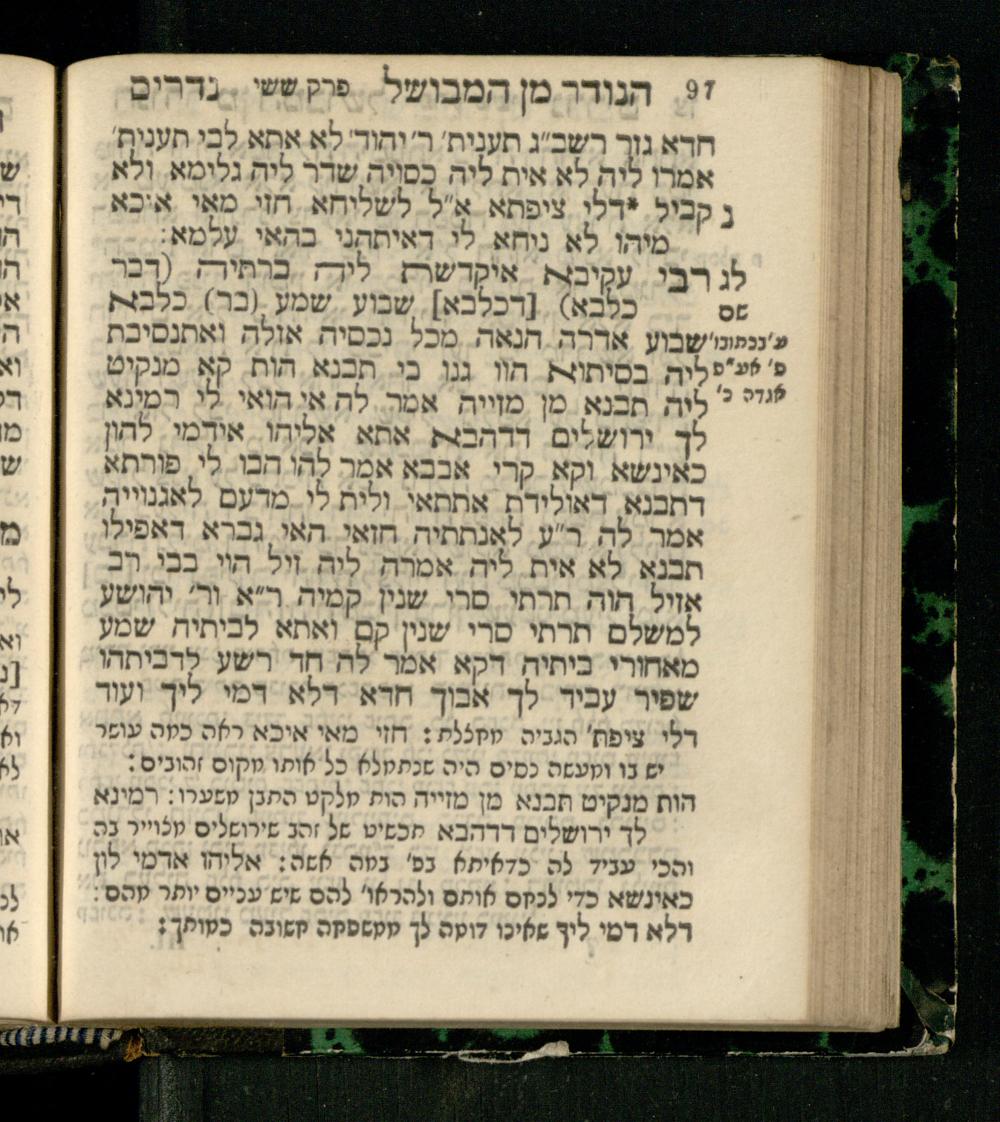 97 הנודר מן המבושל פרק ששי נדרים
חדא גזר רשב״ג תענית׳ ר׳ יהוד׳ לא אתא לבי תענית׳
אמרו ליה לא אית ליה כסויה שדר ליה גלימא ולא
נ קביל *דלי ציפתא א״ל לשליחא חזי מאי איכא
מיהו לא ניחא לי דאיתהני בהאי עלמא:
לג רבי עקיבא איקדשת ליה ברתיה (דבר
שם כלבא) [דכלבא] שבוע שמע (בר) כלבא
ע׳ בכתובו׳ שבוע אדרה הנאה מכל נכסיה אזלה ואתנסיבת
פ׳ אע״פ ליה בסיתוא הוו גנו בי תבנא הות קא מנקיט
אגדה כ׳ ליה תבנא מן מזייה אמר לה אי הואי לי רמינא
לך ירושלים דדהבא אתא אליהו אידמי להון
כאינשא וקא קרי אבבא אמר להו הבו לי פורתא
דתבנא דאולידת אתתאי ולית לי מדעם לאגנוייה
אמר לה ר״ע לאנתתיה חזאי האי גברא דאפילו
תבנא לא אית ליה אמרה ליה זיל הוי בבי רב
אזיל הוה תרתי סרי שנין קמיה ר״א ור׳ יהושע
למשלם תרתי סרי שנין קם ואתא לביתיה שמע
מאחורי ביתיה דקא אמר לה חד רשע לדביתהו
שפיר עביד לך אבוך חדא דלא דמי ליך ועוד
דלי ציפת׳ הגביה מחצלת: חזי מאי איכא ראה כמה עושר
יש בו ומעשה נסים היה שנתמלא כל אותו מקום זהובים:
הות מנקיט תבנא מן מזייה הות מלקט התבן משערו: רמינא
לך ירושלים דדהבא תכשיט של זהב שירושלים מצוייר בה
והכי עביד לה כדאיתא בפ׳ במה אשה: אליהו אדמי לון
כאינשא כדי לנחם אותם ולהראו׳ להם שיש עניים יותר מהם:
דלא דמי ליך שאינו דומה לך ממשפחה חשובה כמותך: